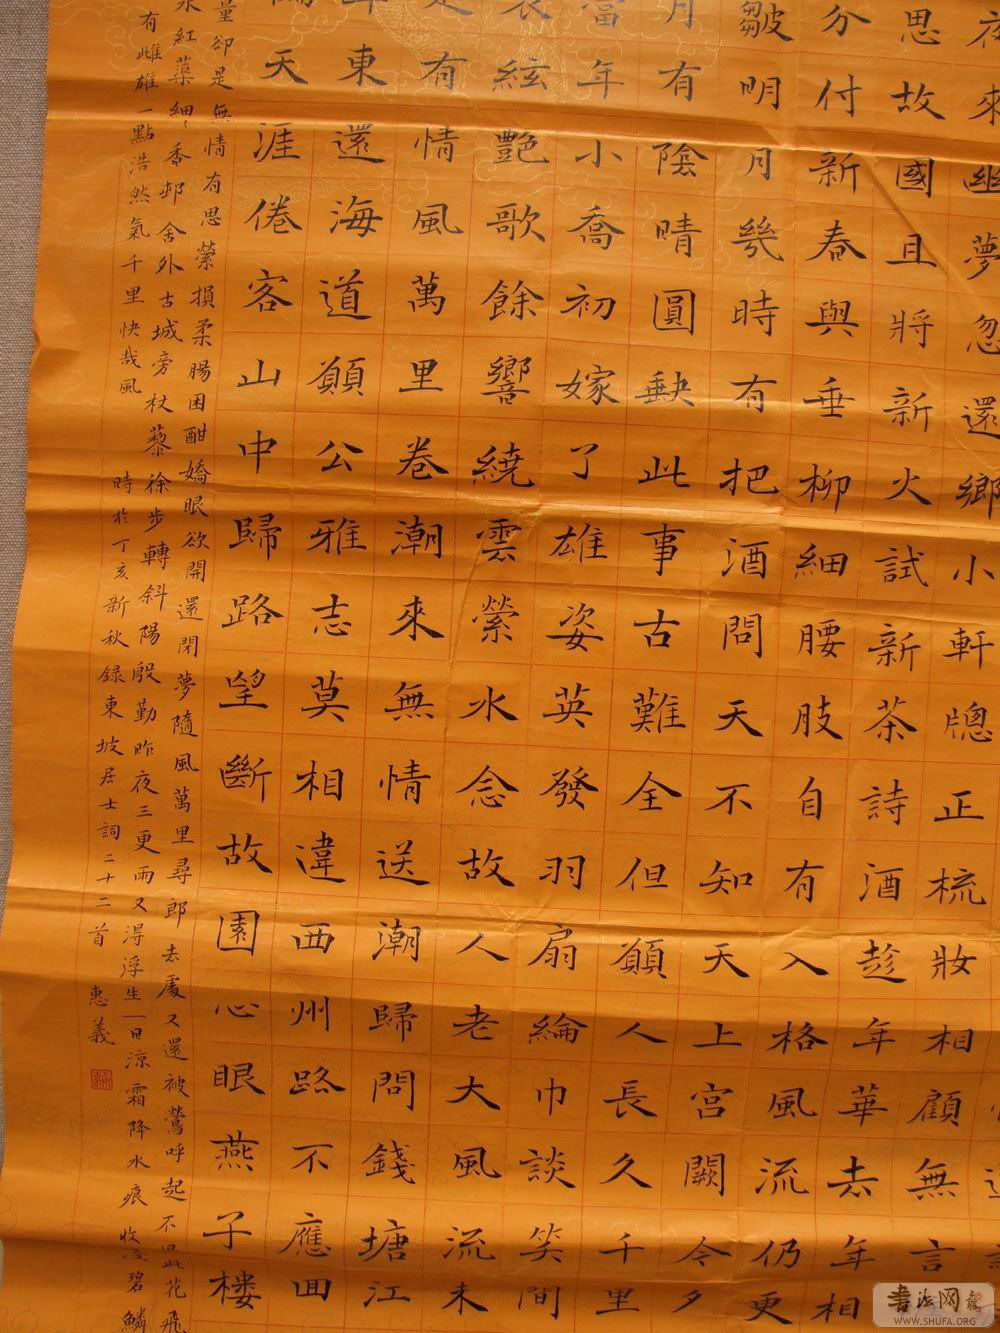 夜來幽夢忽還鄉小軒牕正梳妝相顧無言
思故國且將新火試新茶詩酒趁年華去年相
分付新春與垂柳細腰肢自有入格風流仍更
皺明月幾時有把酒問天不知天上宮闕今夕
月有陰晴圓缺此事古難全但願人長久千里
當年小喬初嫁了雄姿英發羽扇綸巾談笑間
絃艷歌餘響繞雲縈水念故人老大風流未
有情風萬里卷潮來無情送潮歸問錢塘江
東還海道願公雅志莫相違西州路不應回
天涯倦客山中歸路望斷故園心眼燕子樓
量卻是無情有思縈損柔腸困酣嬌眼欲開還閉夢隨風萬里尋郎去處又還被鶯呼起不恨此花飛
紅蕖細々香邨舍外古城旁杖藜徐步轉斜陽殷勤昨夜三更雨又得浮生一日涼霜降水痕收淺碧鱗
有雌雄一點浩然氣千里快哉風 時於丁亥新秋錄東坡居士詞二十二首 惠義
書法网
WWW.SHUFA.ORG